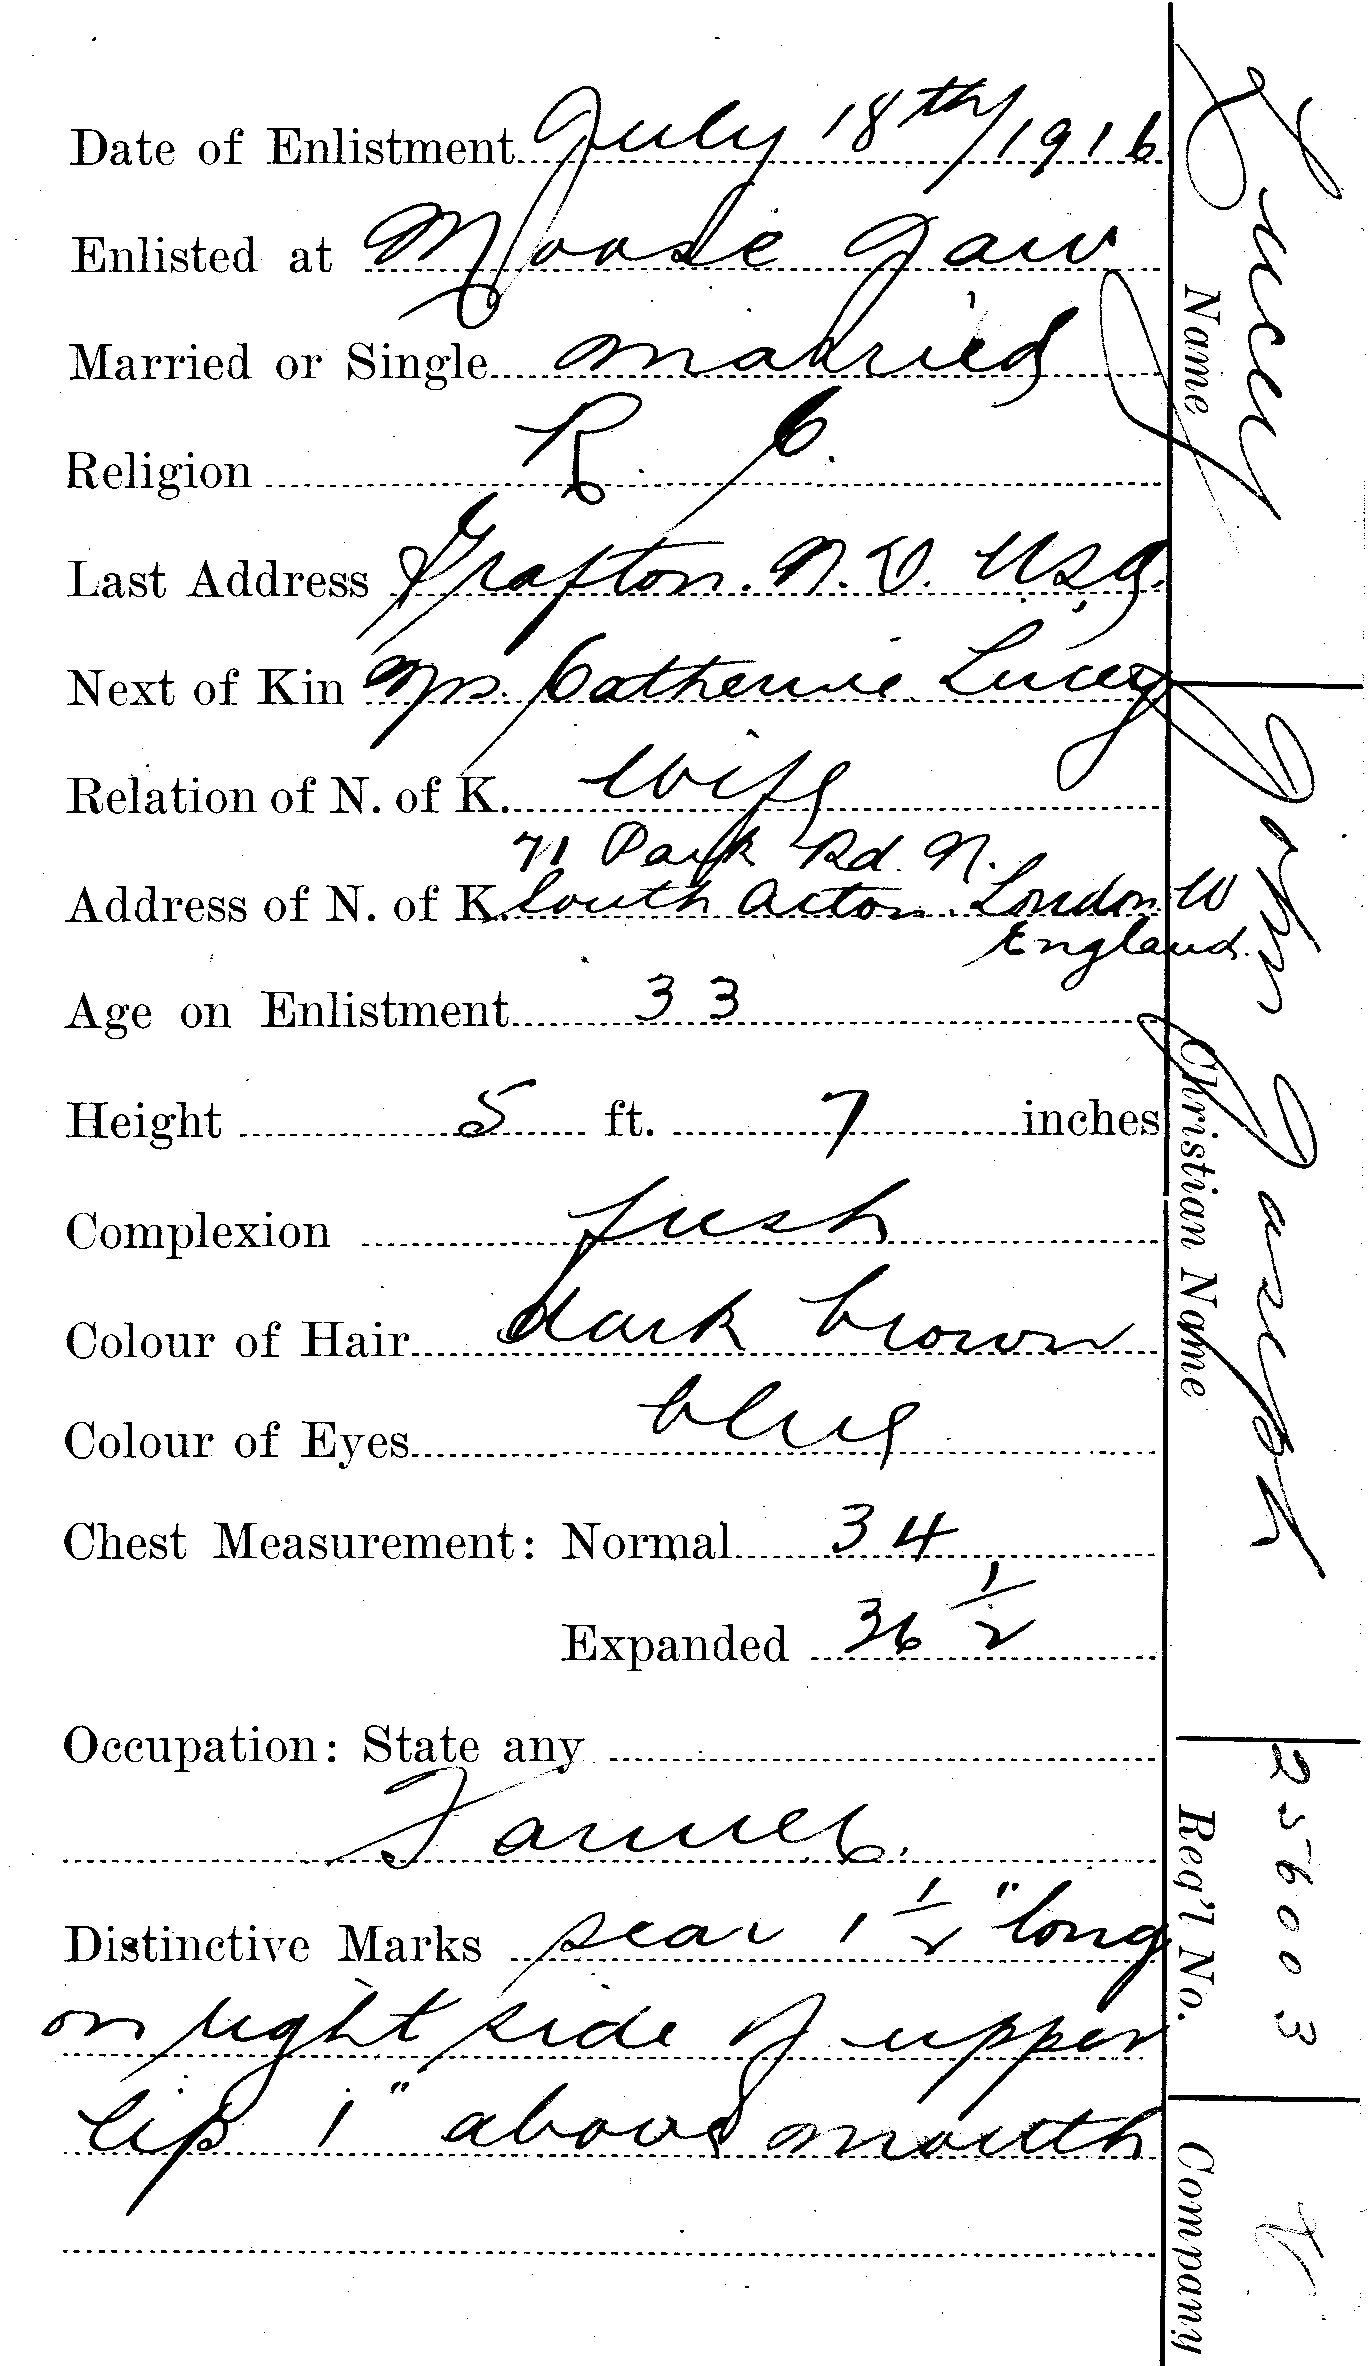 Date of Enlistment July 18th/1916
Enlisted at Moose Jaw
Married or Single married
Religion R. C.
Last Address Grafton. N.D. USA.
Next of Kin Mrs. Catherine Lucey
Relation of N. of K. wife
71 Park Rd. N.
Address of N. of K. South Acton. London W
England.
Age on Enlistment 33
Height 5 ft. 7 inches
Complexion fresh
Colour of Hair dark brown
Colour of Eyes blue
Chest Measurement: Normal 34
Expanded 36 1/2
Occupation: State any
Farmer.
Distinctive Marks scar 1 1/2" long
on right side of upper
lip 1" above mouth
Lucey
Name
John Joseph
Christian Name
256003
Reg'l No.
Company